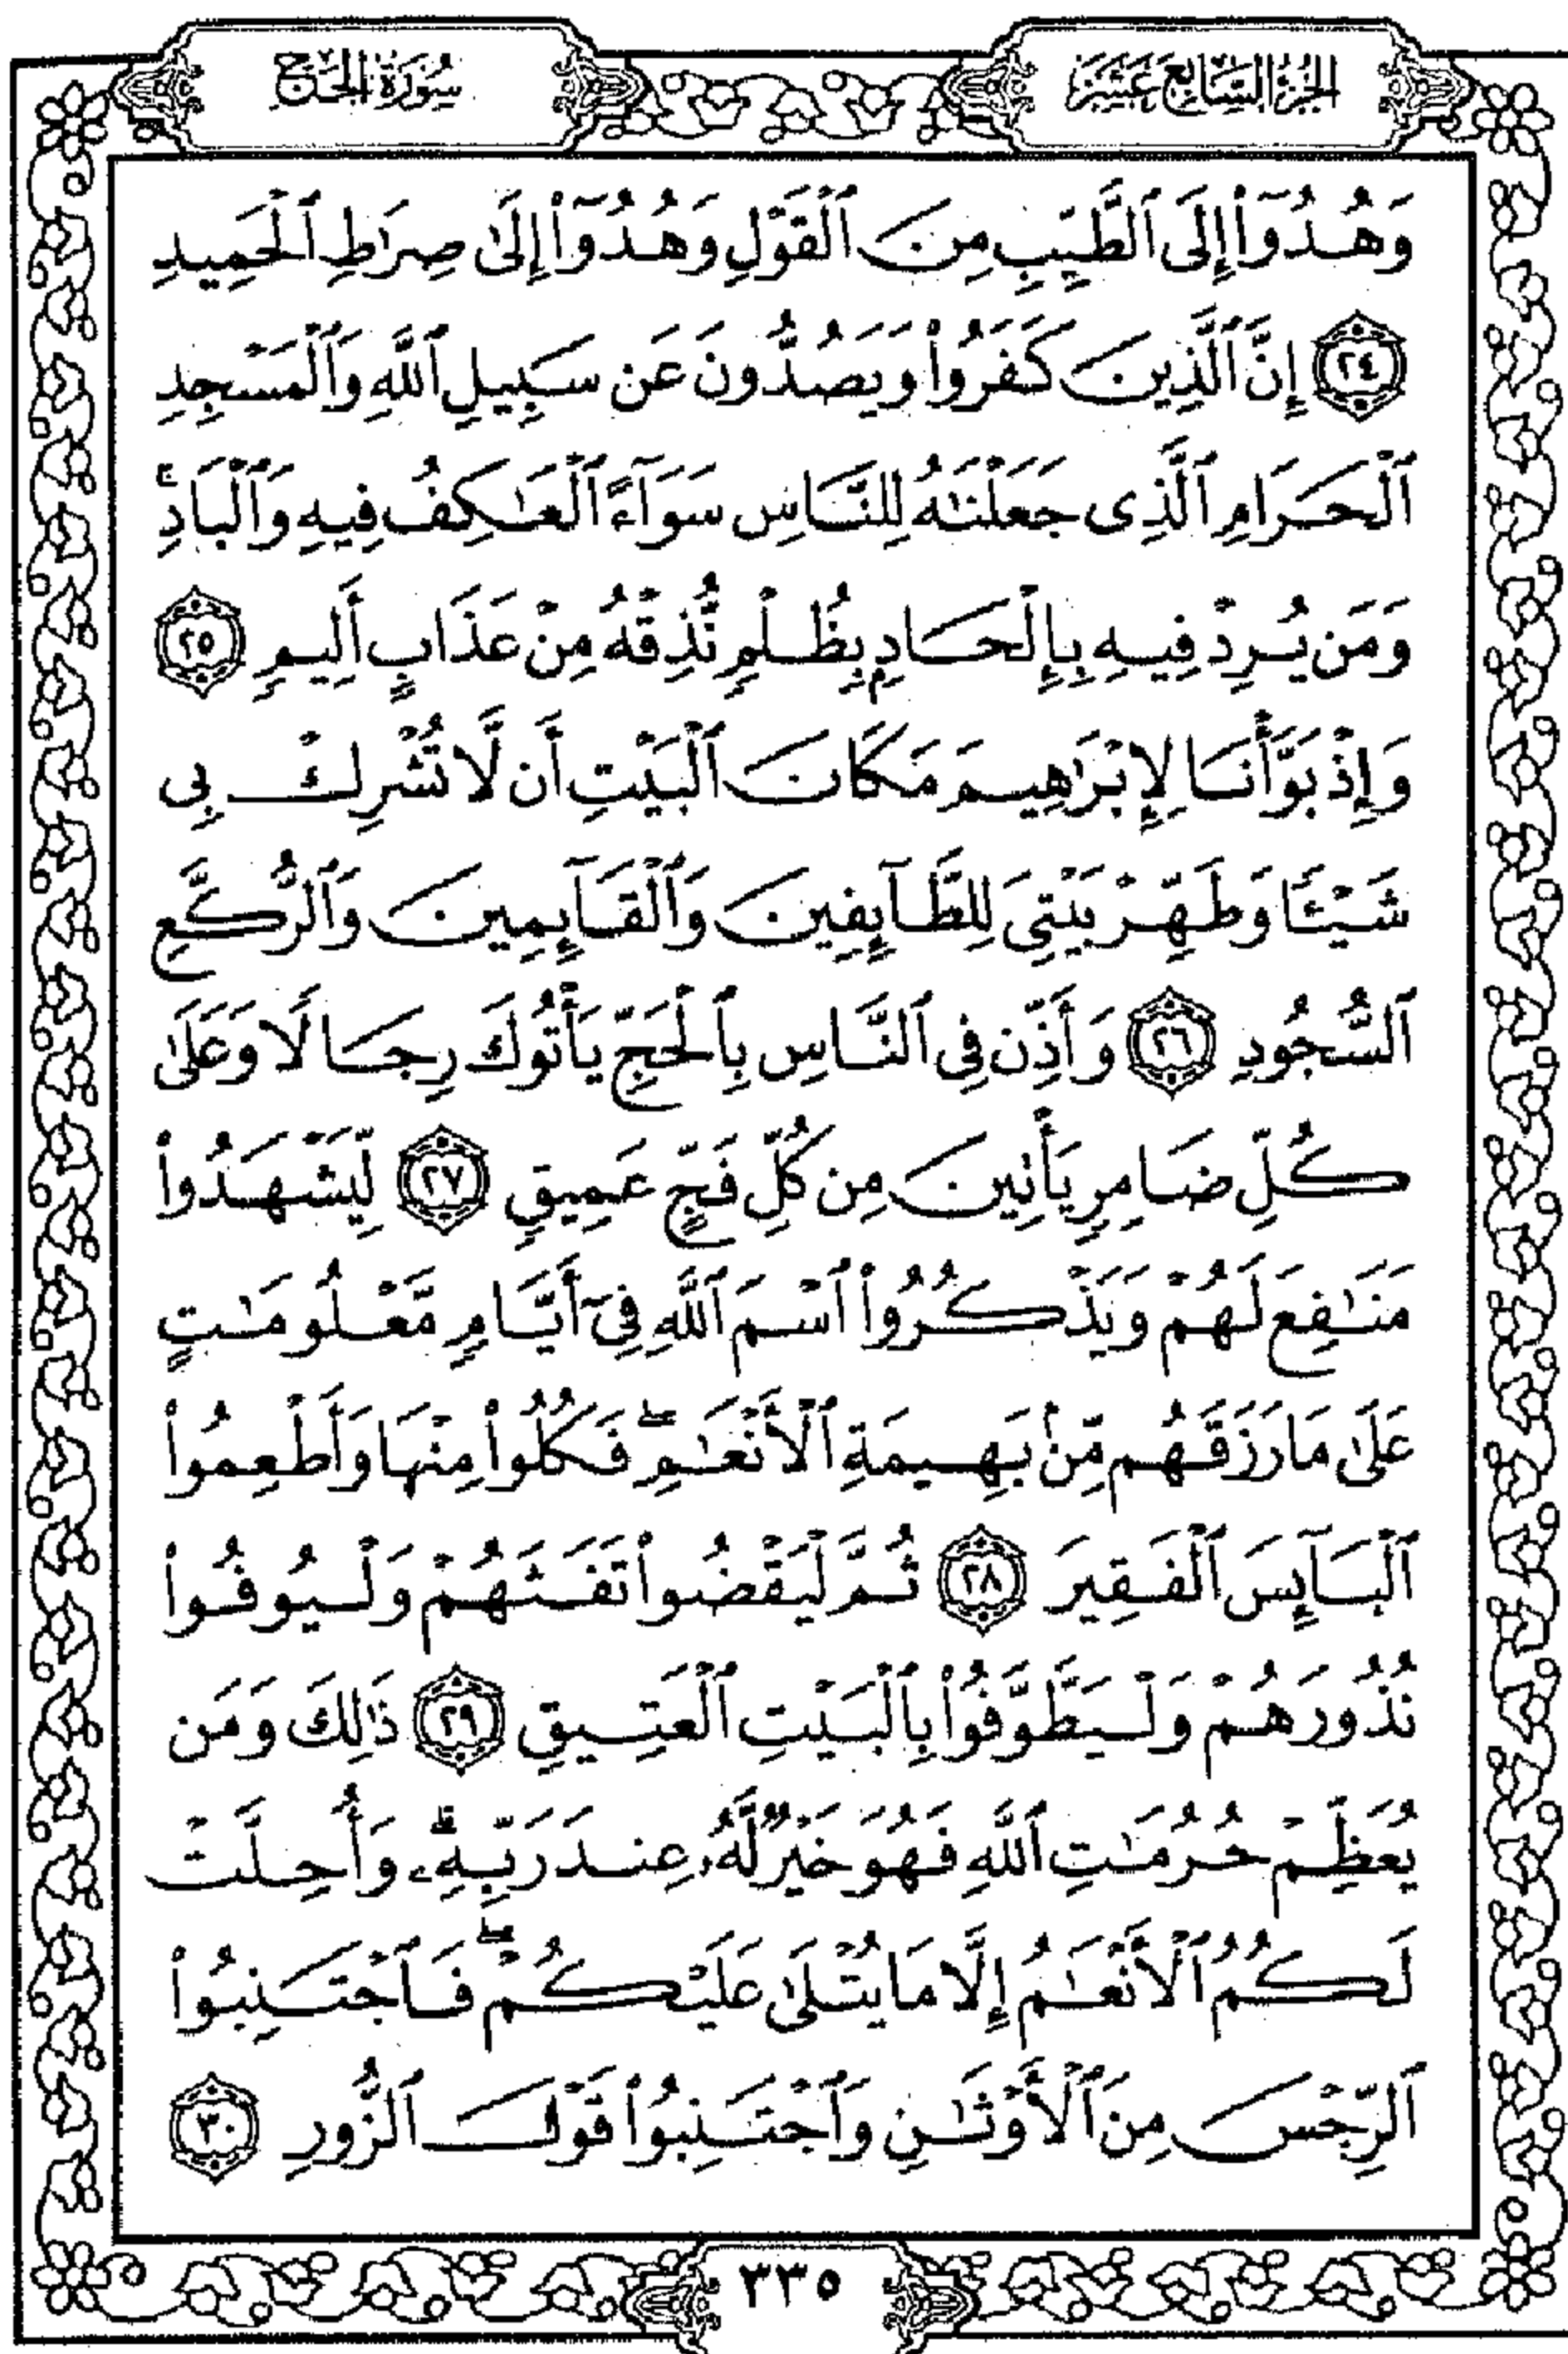 الجزء السابع عشر
سورة الحج
وَهُدُوٓا۟ إِلَى ٱلطَّيِّبِ مِنَ ٱلْقَوْلِ وَهُدُوٓا۟ إِلَىٰ صِرَٰطِ ٱلْحَمِيدِ
٢٤ إِنَّ ٱلَّذِينَ كَفَرُوا۟ وَيَصُدُّونَ عَن سَبِيلِ ٱللَّهِ وَٱلْمَسْجِدِ
ٱلْحَرَامِ ٱلَّذِى جَعَلْنَٰهُ لِلنَّاسِ سَوَآءً ٱلْعَٰكِفُ فِيهِ وَٱلْبَادِ ۚ
وَمَن يُرِدْ فِيهِ بِإِلْحَادٍۭ بِظُلْمٍ نُّذِقْهُ مِنْ عَذَابٍ أَلِيمٍ ٢٥
وَإِذْ بَوَّأْنَا لِإِبْرَٰهِيمَ مَكَانَ ٱلْبَيْتِ أَن لَّا تُشْرِكْ بِى
شَيْـًٔا وَطَهِّرْ بَيْتِىَ لِلطَّآئِفِينَ وَٱلْقَآئِمِينَ وَٱلرُّكَّعِ
ٱلسُّجُودِ ٢٦ وَأَذِّن فِى ٱلنَّاسِ بِٱلْحَجِّ يَأْتُوكَ رِجَالًا وَعَلَىٰ
كُلِّ ضَامِرٍ يَأْتِينَ مِن كُلِّ فَجٍّ عَمِيقٍ ٢٧ لِّيَشْهَدُوا۟
مَنَٰفِعَ لَهُمْ وَيَذْكُرُوا۟ ٱسْمَ ٱللَّهِ فِىٓ أَيَّامٍ مَّعْلُومَٰتٍ
عَلَىٰ مَا رَزَقَهُم مِّنۢ بَهِيمَةِ ٱلْأَنْعَٰمِ ۖ فَكُلُوا۟ مِنْهَا وَأَطْعِمُوا۟
ٱلْبَآئِسَ ٱلْفَقِيرَ ٢٨ ثُمَّ لْيَقْضُوا۟ تَفَثَهُمْ وَلْيُوفُوا۟
نُذُورَهُمْ وَلْيَطَّوَّفُوا۟ بِٱلْبَيْتِ ٱلْعَتِيقِ ٢٩ ذَٰلِكَ وَمَن
يُعَظِّمْ حُرُمَٰتِ ٱللَّهِ فَهُوَ خَيْرٌ لَّهُۥ عِندَ رَبِّهِۦ ۗ وَأُحِلَّتْ
لَكُمُ ٱلْأَنْعَٰمُ إِلَّا مَا يُتْلَىٰ عَلَيْكُمْ ۖ فَٱجْتَنِبُوا۟
ٱلرِّجْسَ مِنَ ٱلْأَوْثَٰنِ وَٱجْتَنِبُوا۟ قَوْلَ ٱلزُّورِ ٣٠
٣٣٥